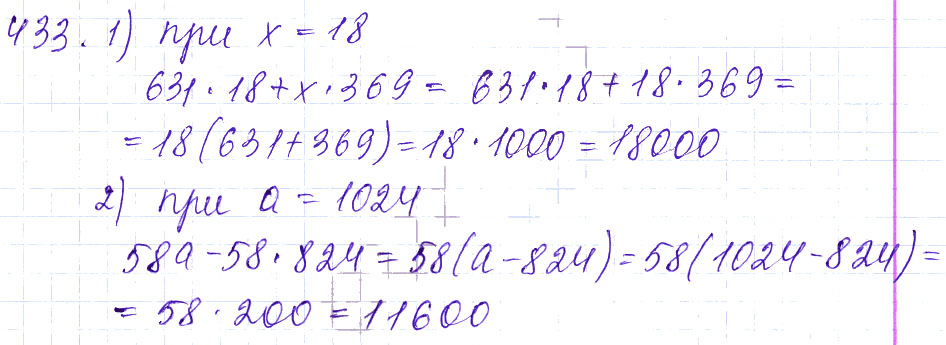 433. 1) при x = 18
631 · 18 + x · 369 = 631 · 18 + 18 · 369 =
= 18 (631 + 369) = 18 · 1000 = 18000
2) при a = 1024
58a - 58 · 824 = 58 (a - 824) = 58 (1024 - 824) =
= 58 · 200 = 11600